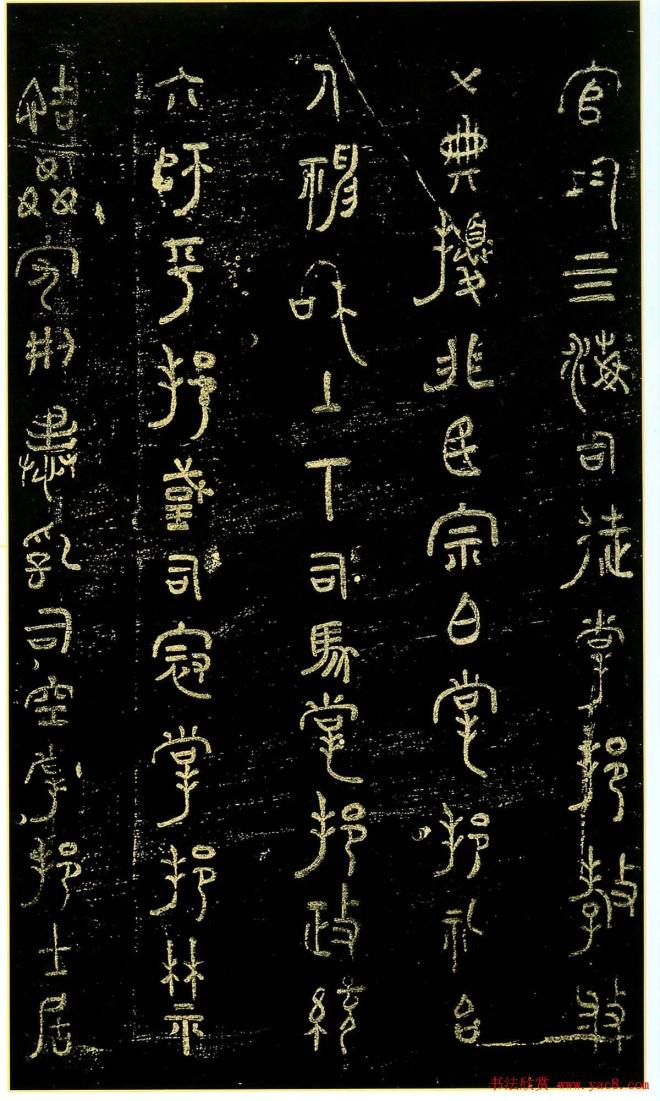 官均亖海司徒掌邦教敷
㐅典擾兆民宗白掌邦礼台
神咊上下司馬掌邦政統
六師平邦國司寇掌邦禁
詰姦刑暴乱司空掌邦土居
书法欣赏 www.yac8.com